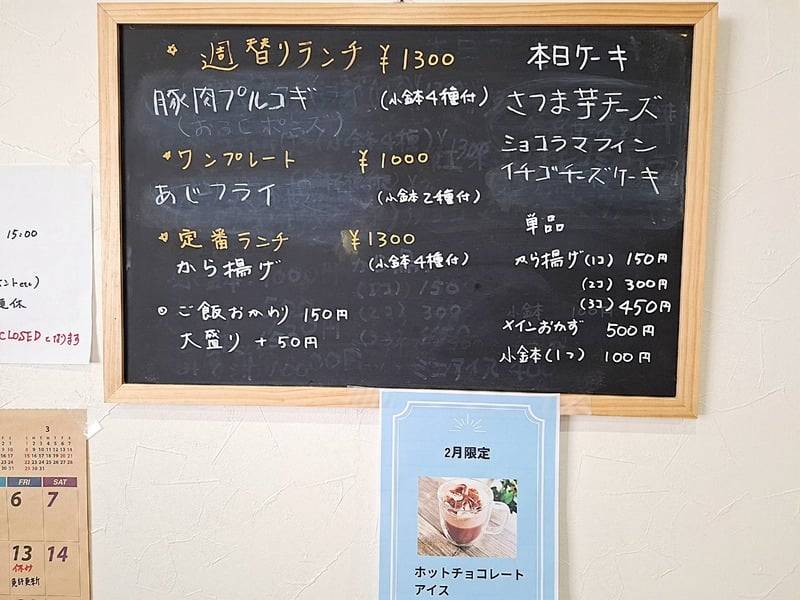 ☆ 週替りランチ ¥1300
豚肉プルコギ (小鉢4種付)
・ワンプレート ¥1000
あじフライ (小鉢2種付)
・定番ランチ ¥1300
から揚げ (小鉢4種付)
◎ ご飯おかわり 150円
大盛り +50円
本日ケーキ
さつま芋チーズ
ショコラマフィン
イチゴチーズケーキ
単品
から揚げ(1コ) 150円
(2コ) 300円
(3コ) 450円
メインおかず 500円
小鉢(1つ) 100円
15:00
CLOSEDとなります
3
FRI SAT
6 7
13 14
休み
免許更新
2月限定
ホットチョコレート
アイス